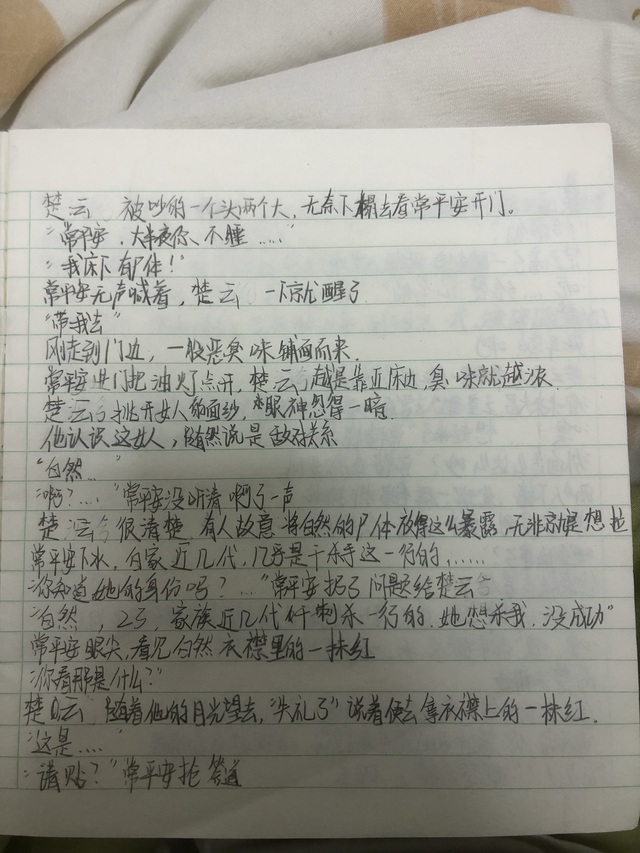 楚云 被吵的一个头两个大，无奈下榻去看常平安开门。
“常平安，大半夜你、不睡……”
“我床下有尸体！”
常平安无声喊着，楚云 一下就醒了
“带我去”
刚走到门边，一股恶臭味铺面而来.
常平安进门把油灯点开，楚云 越是靠近床边，臭味就越浓.
楚云 挑开女人的面纱，眼神忽得一暗.
他认识这女人，随然说是敌对关系
“白然…”
“啊？…”常平安没听清啊了一声
楚云 很清楚，有人故意将白然的尸体放得这么暴露，无非就是想拉
常平安下水，白家近几代，几乎是干杀手这一行的，……
“你知道她的身份吗？…”常平安扔了问题给楚云
“白然，23，家族近几代干刺杀一行的.她想杀我，没成功”
常平安眼尖，看见白然衣襟里的一抹红
“你看那是什么？”
楚云 随着他的目光望去，“失礼了”说着便去拿衣襟上的一抹红.
“这是……”
“请贴？”常平安抢答道